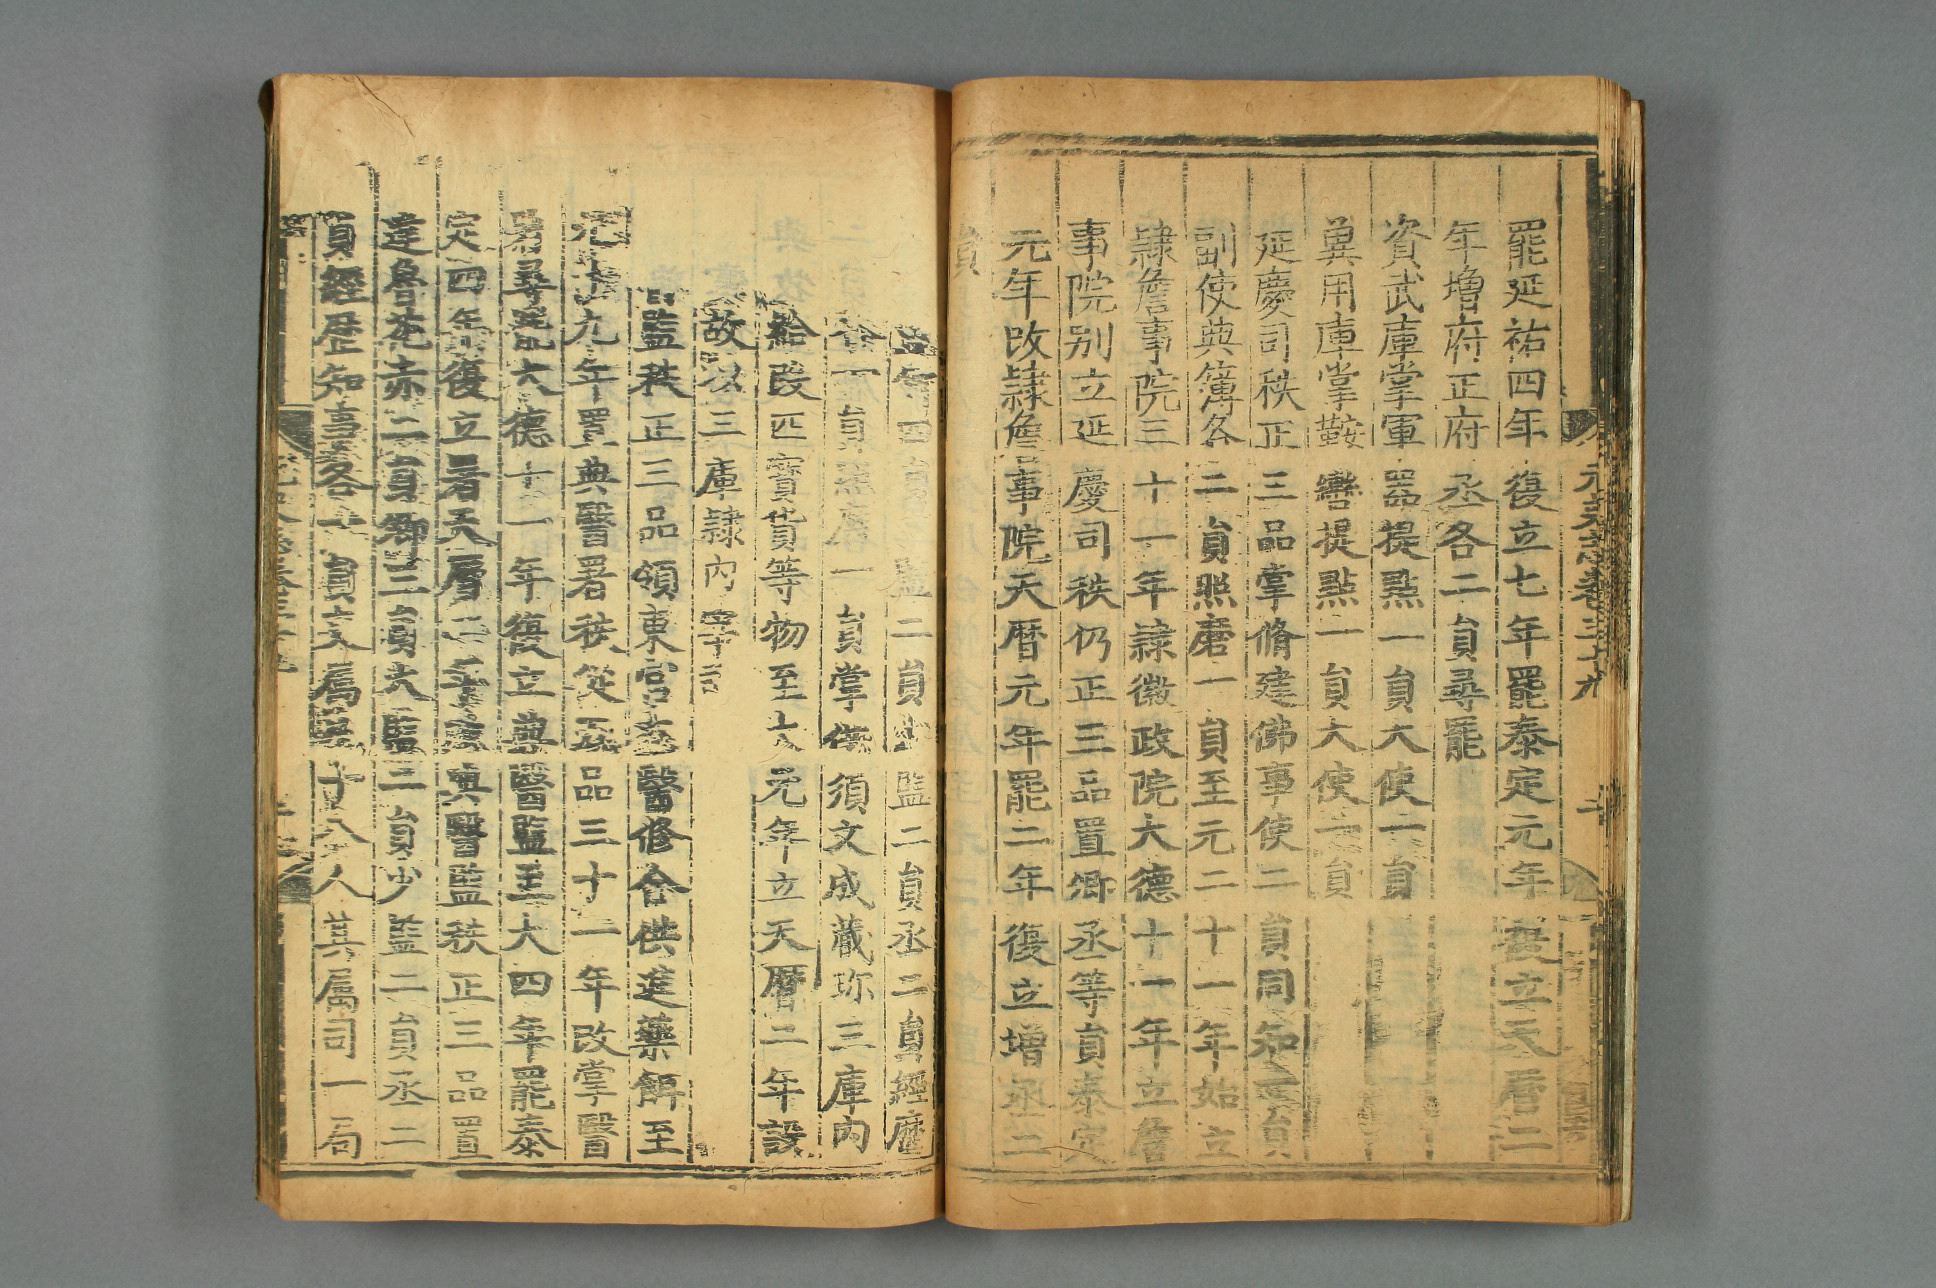 罷延祐四年復立七年罷泰定元年復立天曆二
年增府正府丞各二員尋罷
資武庫掌軍器提點一員大使一員
冀用庫掌鞍轡提點一員大使一員
延慶司秩正三品掌脩建佛事使二員同知二員
副使典簿各二員照磨一員至元二十一年始立
隷詹事院三十一年隷徽政院大德十一年立詹
事院別立延慶司秩仍正三品置卿丞等員泰定
元年改隷詹事院天曆元年罷二年復立增丞二
員
元史志卷三十九
四員 監二員 監二員丞二員經歷
一員 一員掌供須文成藏珎三庫內
給段匹寶貨等物至大元年立天曆二年設
故以三庫隷內
監秩正三品領東宮 醫修合供進藥餌至
元十九年置典醫署秩從五品三十一年改掌醫
署尋罷大德十一年復立典醫監至大四年罷泰
定四年復立署天曆二年 典醫監秩正三品置
達魯花赤二員卿三員太監三員少監二員丞二
員經歷知事各一員 屬 十八人其屬司一局